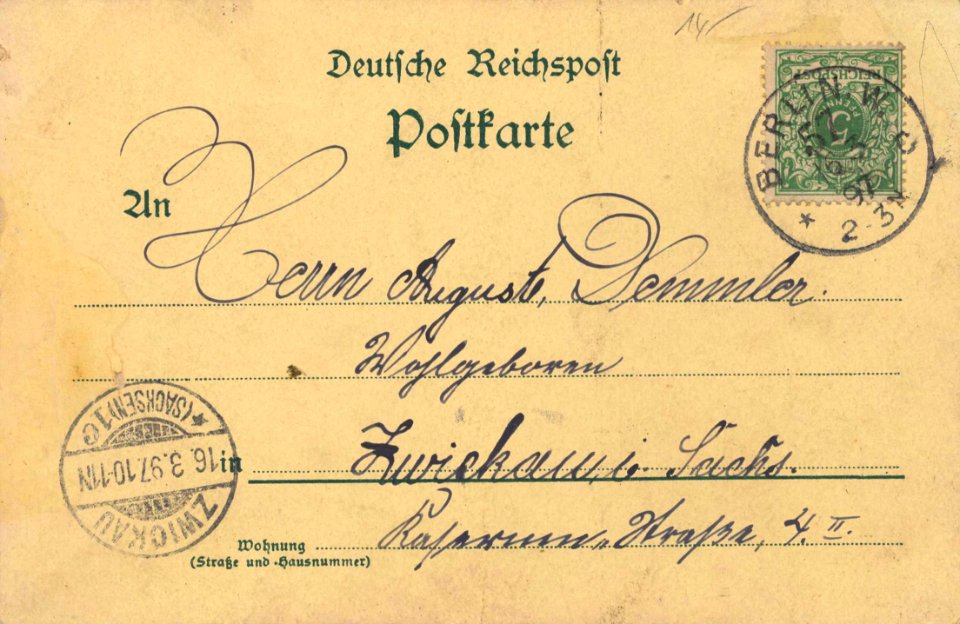 14
Deutsche Reichspost
Postkarte
REICHSPOST
5
BERLIN, W.
97
2-3N
An
Herrn August, Demmler.
Wohlgeboren
(SACHSEN) 1c
16.3.97.10-11N
ZWICKAU
in Zwickau, i. Sachs.
Wohnung Kasernen-Straße, 4. II.
(Straße und Hausnummer)